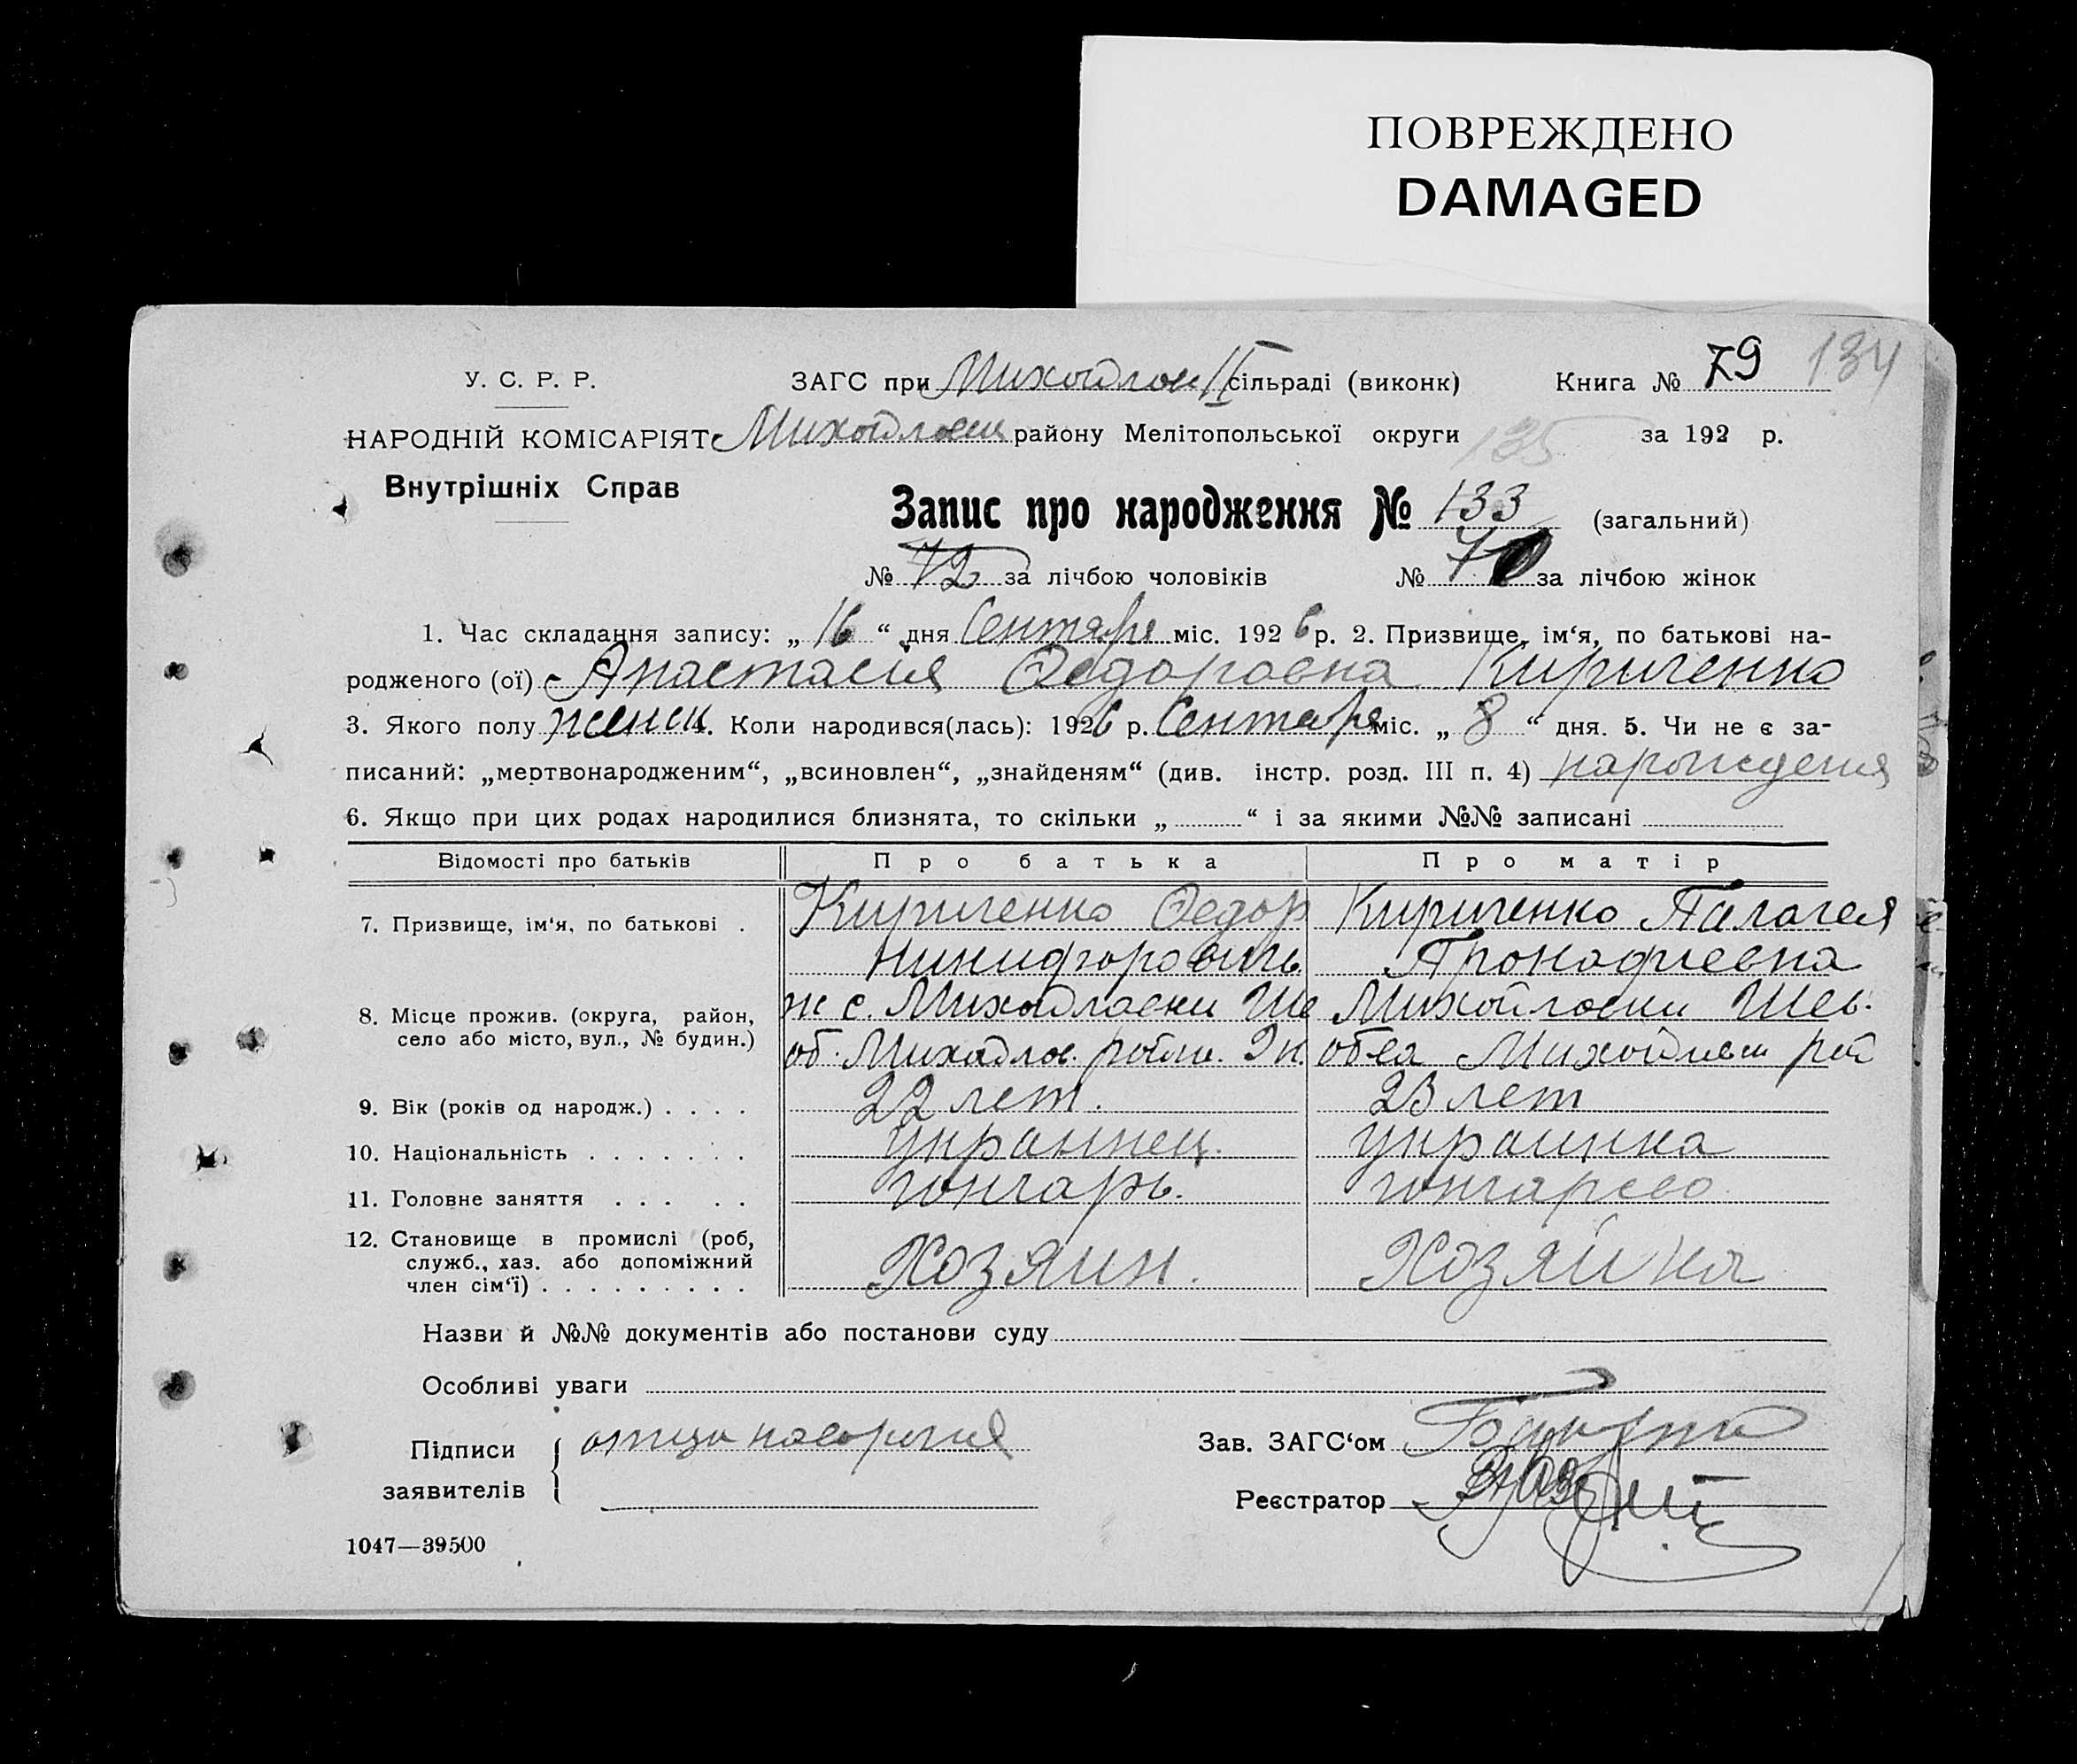 ПОВРЕЖДЕНО
DAMAGED
У. С. Р. Р. ЗАГС при Михайлов II сільраді (виконк) Книга № 79 134
НАРОДНІЙ КОМІСАРІЯТ Михайловск району Мелітопольської округи 135 за 192 р.
Внутрішніх Справ
Запис про народження № 133 (загальний)
№ 72 за лічбою чоловіків № за лічбою жінок
1. Час складання запису: „ 16 “ дня Сентяря міс. 1926 р. 2. Призвище, ім‘я, по батькові на-
родженого (ої) Анастасия Федоровна Кириченко
3. Якого полу женск 4. Коли народився(лась): 1926 р. Сентяря міс. „ 8 “ дня. 5. Чи не є за-
писаний: „мертвонародженим“, „всиновлен“, „знайденям“ (див. інстр. розд. III п. 4) нарождения
6. Якщо при цих родах народилися близнята, то скільки „ “ і за якими №№ записані
Відомості про батьків Про батька Про матір
7. Призвище, ім‘я, по батькові . Кириченко Федор Кириченко Палагея
Никифорович Пронофиевна
8. Місце прожив. (округа, район, ж с. Михайловки Ше Михайловки Шев.
село або місто, вул., № будин.) об. Михайлов. район. Эк. об-ва Михайловск рай
9. Вік (років од народж.) . . . . 22 лет. 23 лет
10. Національність . . . . . . . украинец. украинка
11. Головне заняття . . . . . гончарь. гончарсво
12. Становище в промислі (роб, служб., хаз. або допоміжний член сім‘ї) . . . . . . . . . Хозяин. Хозяйка
Назви й №№ документів або постанови суду
Особливі уваги
Підписи заявителів { отица
Зав. ЗАГС‘ом
Реєстратор
1047—39500